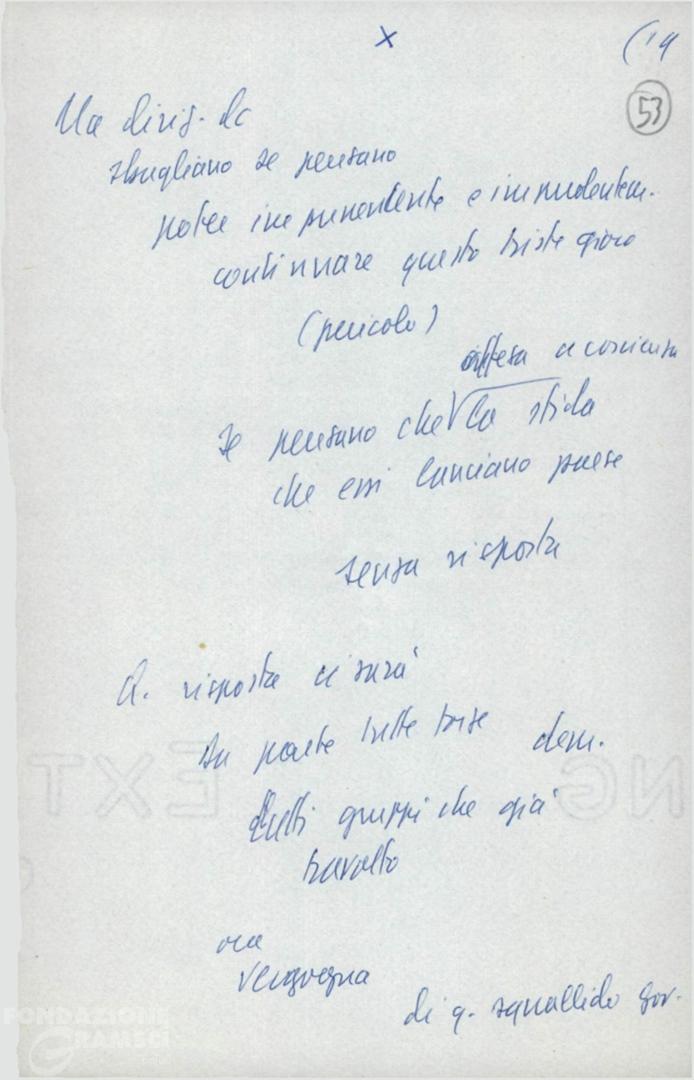 x
(14
53
Ma dirig. dc
sbagliano se pensano
poter impunemente e imprudentem.
continuare questo triste gioco
(pericolo)
offesa a coscienza
se pensano che la sfida
che essi lanciano paese
senza risposta
Q. risposta ci sarà
Da parte tutte forze dem.
tutti gruppi che già
travolto
ora
vergogna
di q. squallido gov.
FONDAZIONE
GRAMSCI